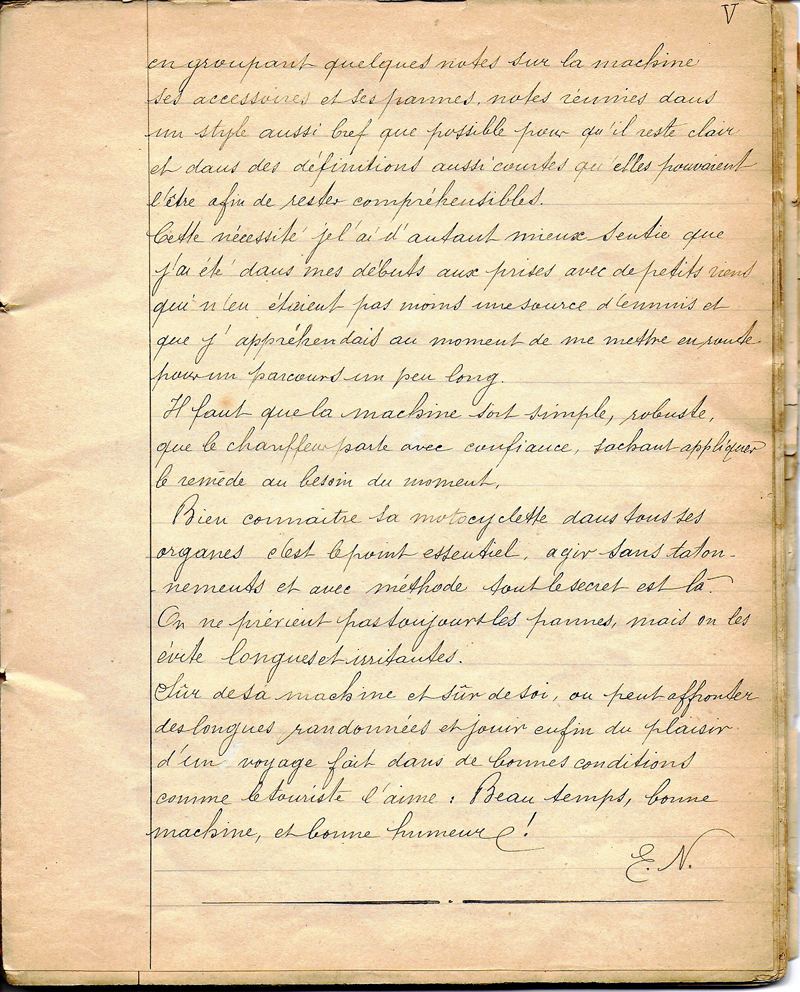 V
en groupant quelques notes sur la machine
ses accessoires et ses pannes, notes réunies dans
un style aussi bref que possible pour qu'il reste clair
et dans des définitions aussi courtes qu'elles pouvaient
l'être afin de rester compréhensibles.
Cette nécessité je l'ai d'autant mieux sentie que
j'ai été dans mes débuts aux prises avec de petits riens
qui n'en étaient pas moins une source d'ennuis et
que j'appréhendais au moment de me mettre en route
pour un parcours un peu long.
Il faut que la machine soit simple, robuste,
que le chauffeur parte avec confiance, sachant appliquer
le remède au besoin du moment.
Bien connaitre sa motocyclette dans tous ses
organes c'est le point essentiel, agir sans taton-
nements et avec méthode tout le secret est là.
On ne prévient pas toujours les pannes, mais on les
évite longues et irritantes.
Sûr de sa machine et sûr de soi, on peut affronter
des longues randonnées et jouir enfin du plaisir
d'un voyage fait dans de bonnes conditions
comme le touriste l'aime : Beau temps, bonne
machine, et bonne humeur !
E. N.